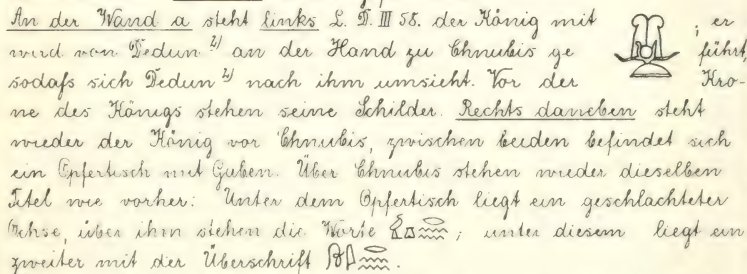 An der Wand a steht links L. D. III 58. der König mit ; er
wird von Dedun 2) an der Hand zu Chnubis geführt,
sodaſs sich Dedun 2) nach ihm umsieht. Vor der Kro-
ne des Königs stehen seine Schilder. Rechts daneben steht
wieder der König vor Chnubis, zwischen beiden befindet sich
ein Opfertisch mit Gaben. Über Chnubis stehen wieder dieselben
Titel wie vorher: Unter dem Opfertisch liegt ein geschlachteter
Ochse, über ihm stehen die Worte ; unter diesem liegt ein
zweiter mit der Überschrift .